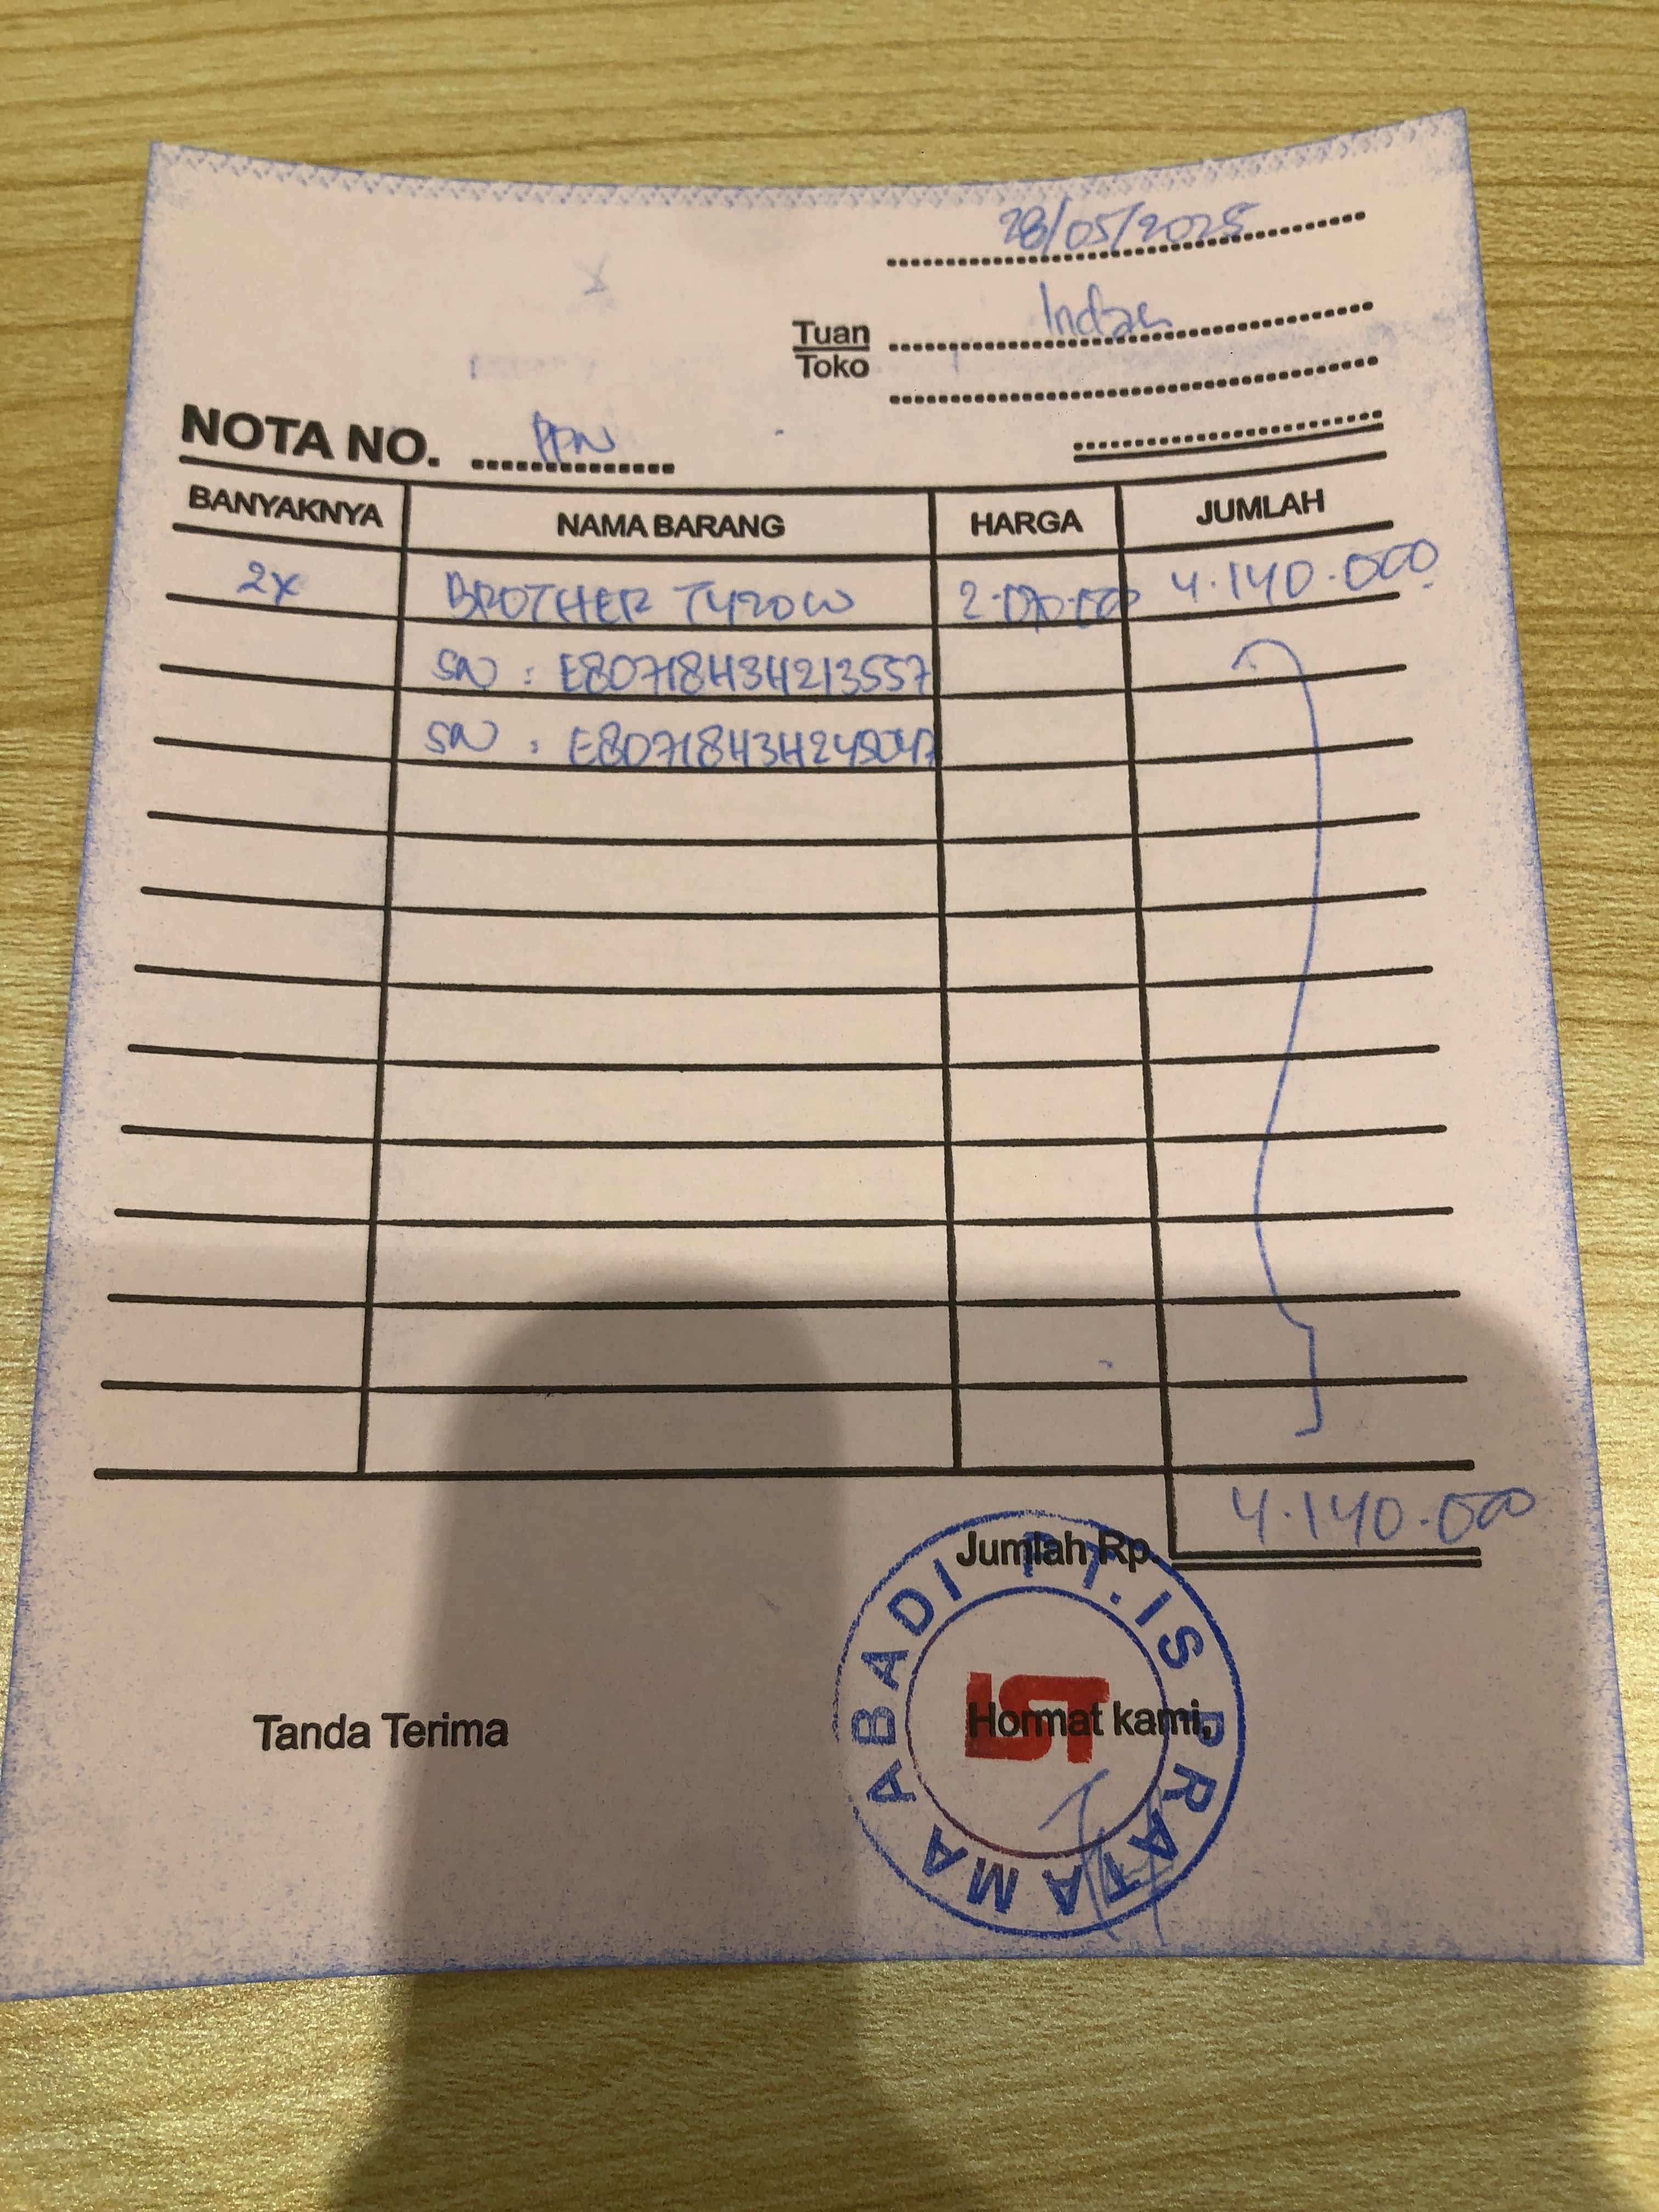 28/05/2025
Tuan
Toko
Indra
NOTA NO. PPN
BANYAKNYA NAMA BARANG HARGA JUMLAH
2x BROTHER T420W 2.070.000 4.140.000
SN : E80718H3H213557
SN :
4.140.000
Jumlah Rp.
Tanda Terima Hormat kami,
PT.IS PRATAMA ABADI
IST